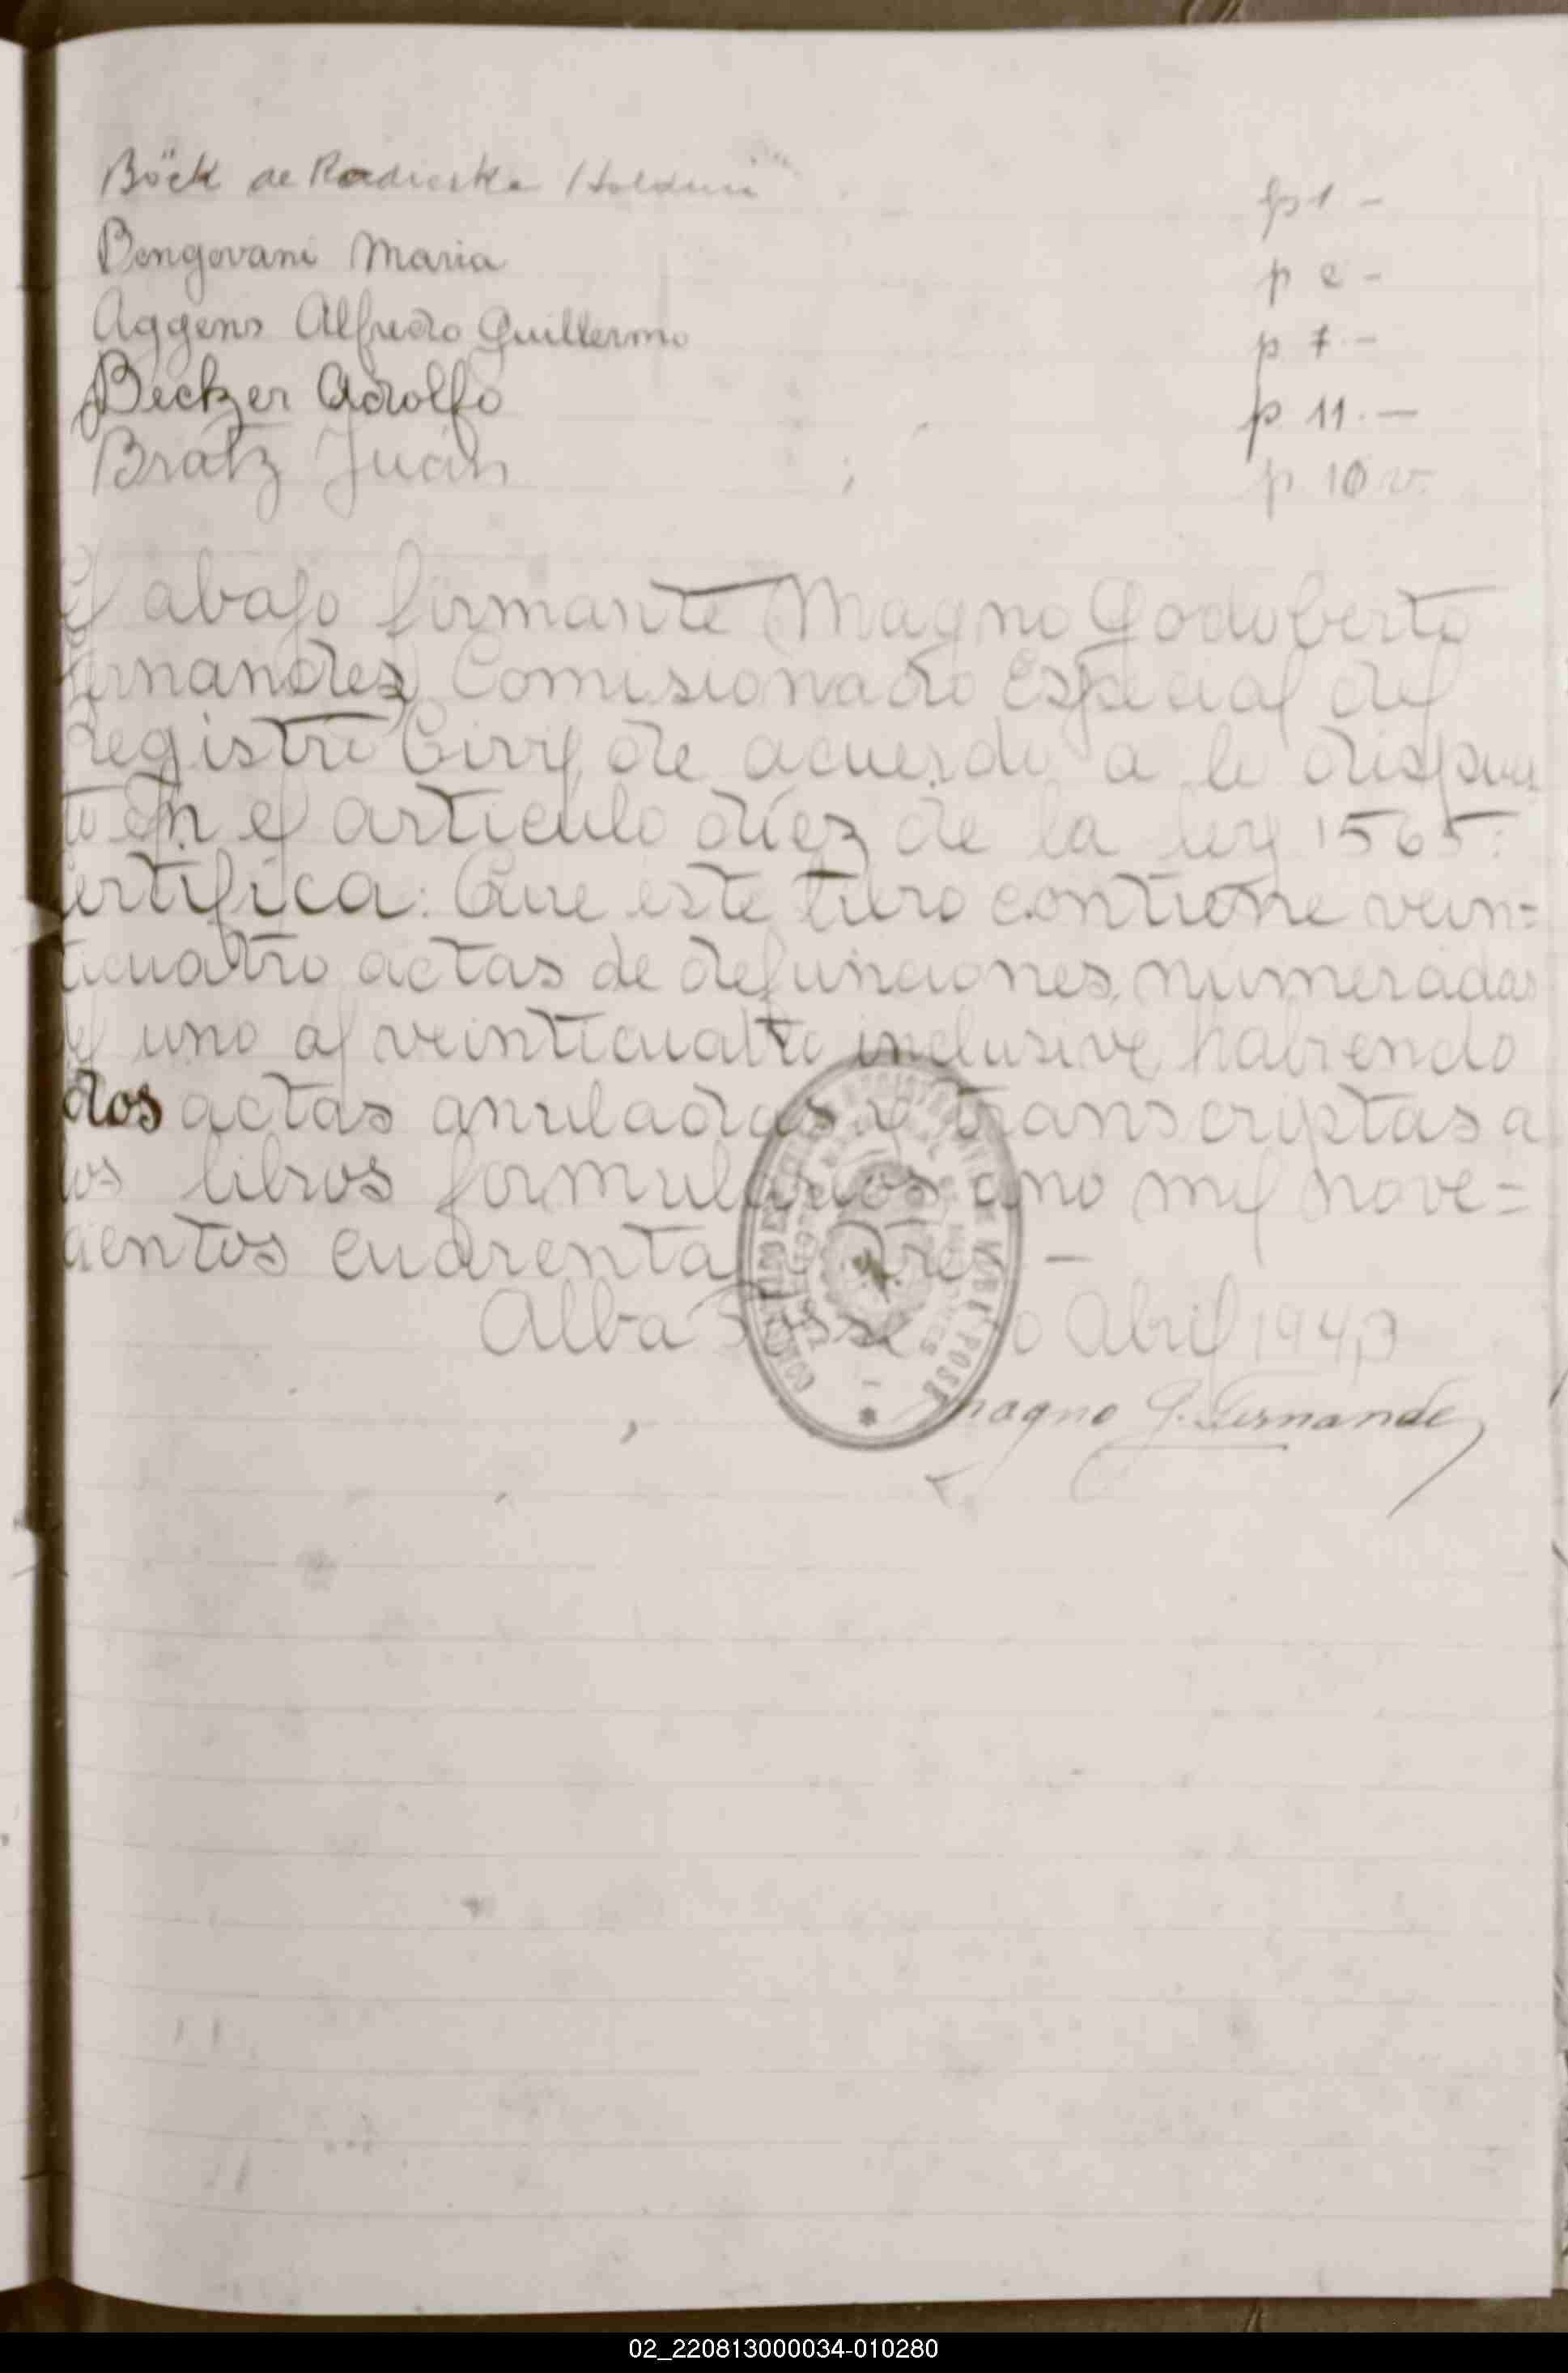 Böck de Radieske p 1 -
Bengovani Maria p 2 -
Aggens Alfredo Guillermo p 7.-
Becker Adolfo p 11.-
Bratz Juan p 10 v.
El abajo firmante Magno Godoberto
Fernandez Comisionado Especial del
Registro Civil, de acuerdo a lo dispues
to en el articulo diez de la ley 1565:
Certifica: Que este libro contiene vein=
ticuatro actas de defunciones, numeradas
el uno al veinticuatro inclusive habiendo
dos actas anuladas y transcriptas a
los libros formularios año mil nove=
cientos cuarenta y tres -
Alba Posse Abril 1943
Magno G. Fernande
02_220813000034-010280